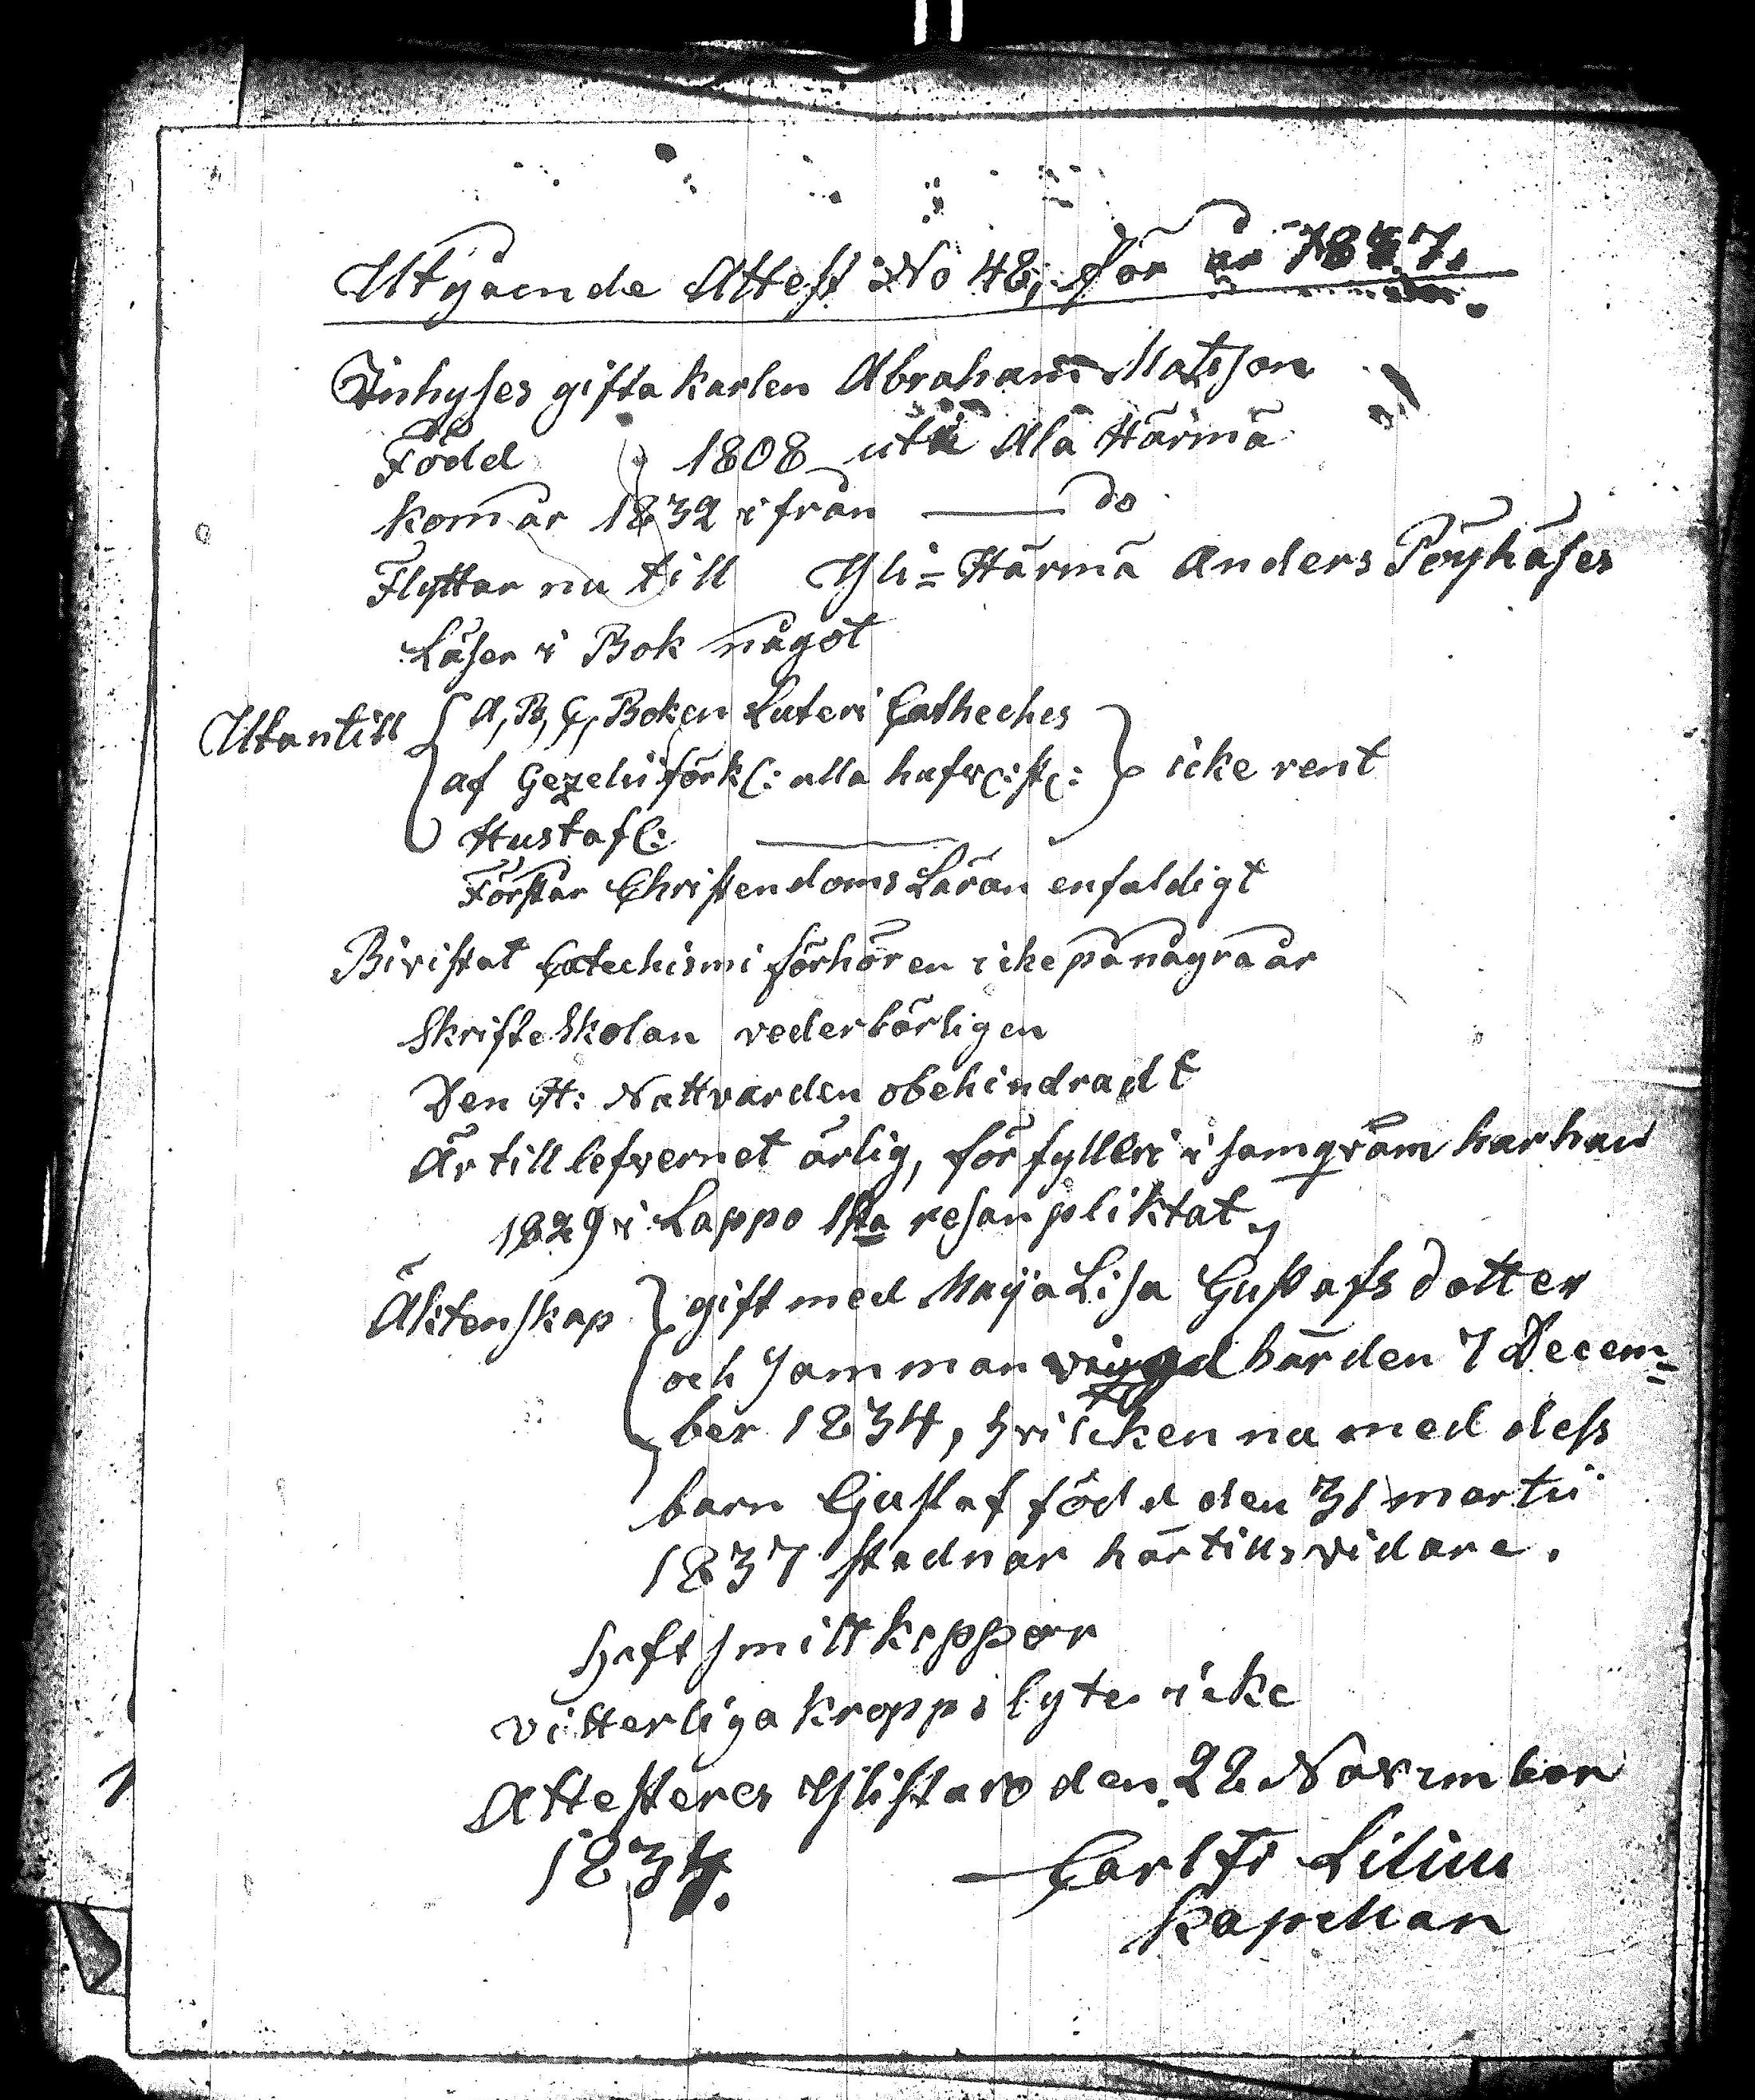 Utgående Attest No 48, för år 1837.
Inhyses gifta karlen Abraham Matsson
Född 1808 uti Ala Härmä
kom år 1832 ifrån —— do
Flyttar nu till Yli=Härmä Anders Pöyhäses
Läser i Bok något
Utantill { A, B, C, Boken Luteri Catheches
af Gezelii förkl: alla hufv(:st(: } icke rent
Hustafl: ——
Förstår Christendoms Läran enfaldigt
Bivistat Catechismi förhören icke på några år
Skrifte Skolan vederbörligen
Den H: Nattvarden obehindradt
Är till lefvernet ärlig, för fylleri i samqväm har han
1829 i Lappo 1sta resan pliktat,
Äktenskap { gift med Maija Lisa Gustafs dotter
och Samman vigd här den 7 Decem=
ber 1834, hvilcken nu med dess
barn Gustaf född den 31 martii
1837 stadnar här tills vidare.
Haft smittkoppor
vitterliga kropps lyte icke
Attesteres Ylistaro den 22 November
1837.
— Carl Fr Lilius
Kapellan